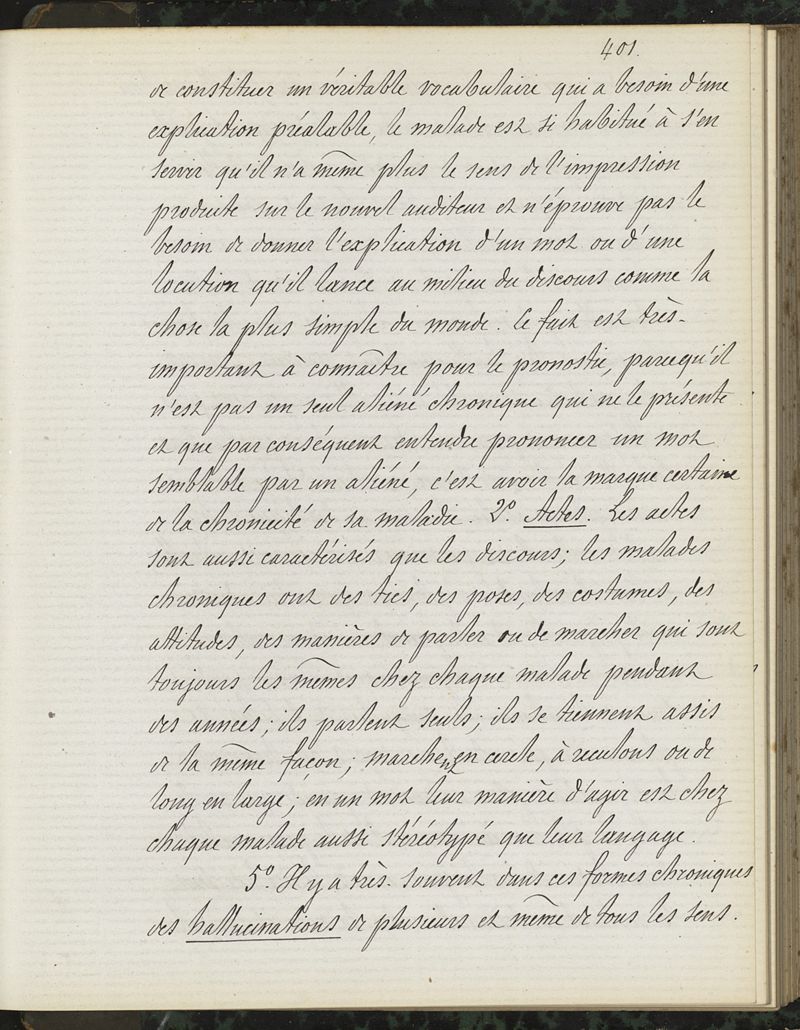 401.
de constituer un véritable vocabulaire qui a besoin d'une
explication préalable, le malade est si habitué à s'en
servir qu'il n'a même plus le sens de l'impression
produite sur le nouvel auditeur et n'éprouve pas le
besoin de donner l'explication d'un mot ou d'une
locution qu'il lance au milieu du discours comme la
chose la plus simple du monde. Ce fait est très-
important à connaître pour le pronostic, parcequ'il
n'est pas un seul aliéné chronique qui ne le présente
et que par conséquent entendre prononcer un mot
semblable par un aliéné, c'est avoir la marque certaine
de la chronicité de sa maladie. 2º. Actes. Les actes
sont aussi caractérisés que les discours; les malades
chroniques ont des tics, des poses, des costumes, des
attitudes, des manières de parler ou de marcher qui sont
toujours les mêmes chez chaque malade pendant
des années; ils parlent seuls; ils se tiennent assis
de la même façon; marchent en cercle, à reculons ou de
long en large; en un mot leur manière d'agir est chez
chaque malade aussi stéréotypé que leur langage.
5º. Il y a très-souvent dans ces formes chroniques
des hallucinations de plusieurs et même de tous les sens.